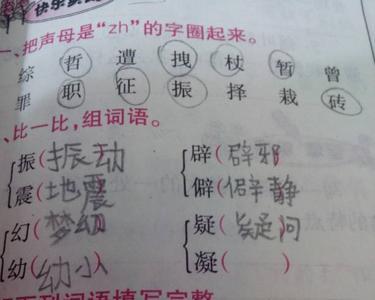 快乐
一、把声母是“zh”的字圈起来。
综 哲 遭 拽 杖 暂 曾
罪 职 征 振 择 栽 砖
、比一比,组词语。
振(振动) 辟(辟邪)
震(地震) 僻(僻静)
幻(梦幻) 疑(疑问)
幼(幼小) 凝( )
下列词语填写完整